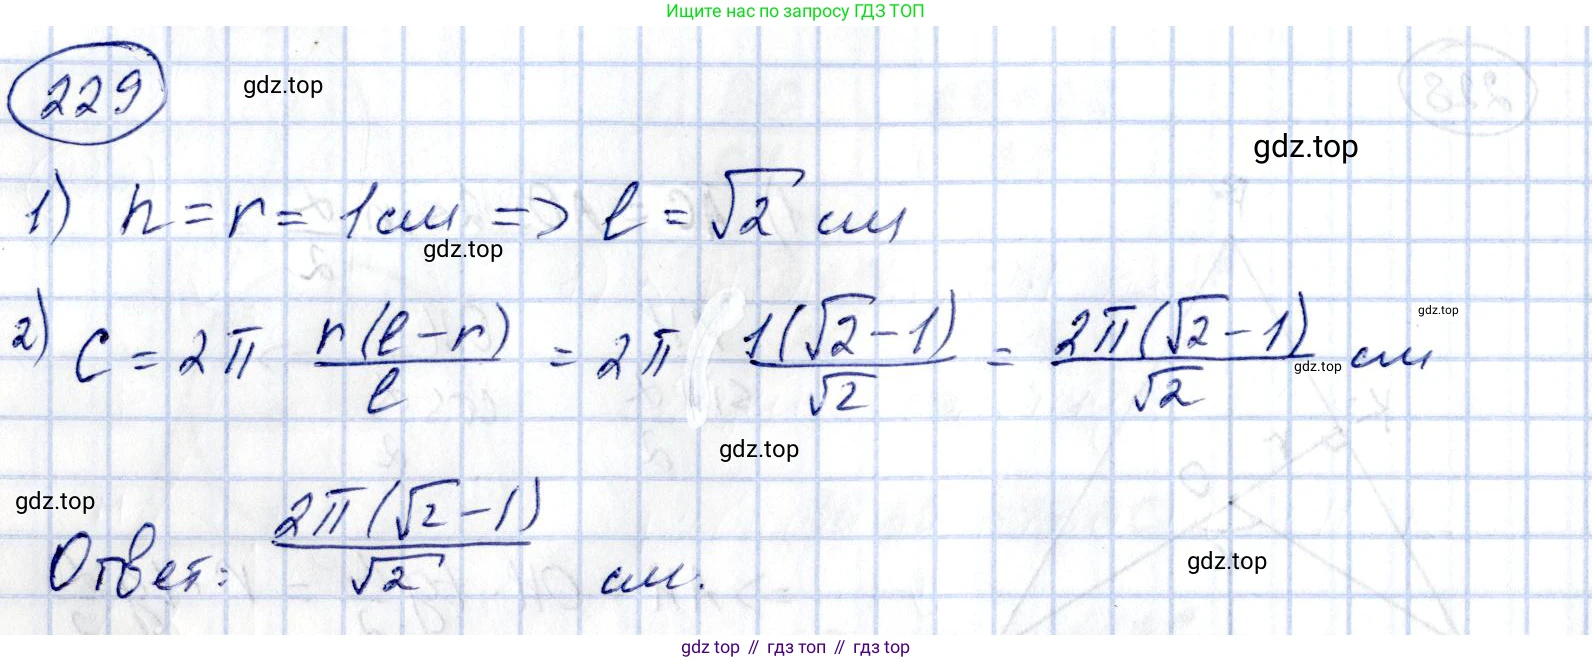 Ищите нас по запросу ГДЗ ТОП
229
gdz.top
gdz.top
1) h = r = 1 см => l = √2 см
gdz.top
2) C = 2π r(l-r)/l = 2π 1(√2-1)/√2 = 2π(√2-1)/√2 см
gdz.top
gdz.top
gdz.top
gdz.top
Ответ: 2π(√2-1)/√2 см.
gdz.top
gdz top // гдз топ // гдз top